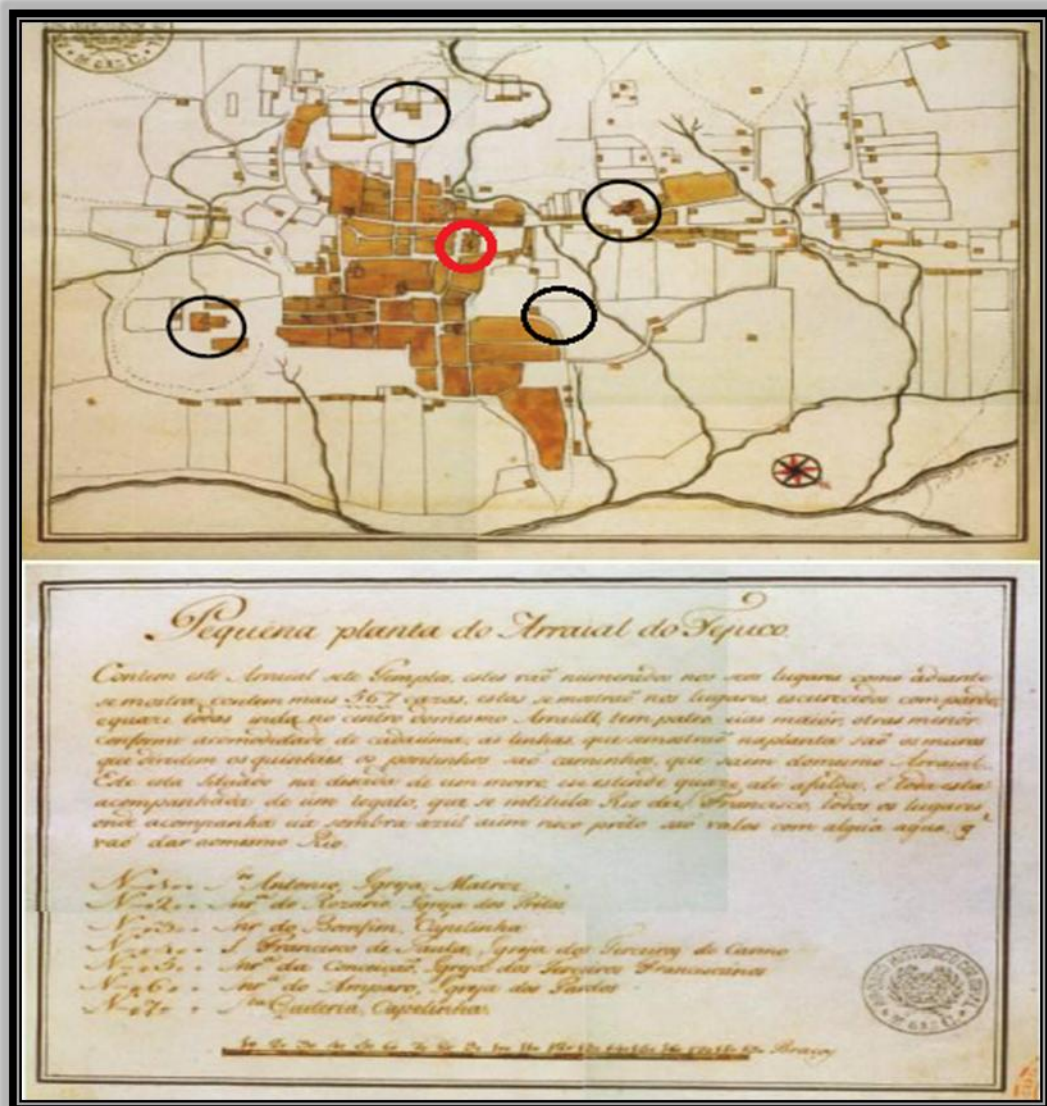 Pequena planta do Arraial do Tejuco.
Contem este Arraial sete Templos, estes vaõ numerados nos seus lugares como adiante
se mostra, contem mais 567 cazas, estas se mostraõ nos lugares escurecidos com pardo,
e quazi todas inda no centro do mesmo Arraial, tem pateo, huas maior, otras menor
conforme acomodidade de cada uma, as linhas, que se mostraõ na planta saõ os muros
que dividem os quintaes, os pontinhos saõ caminhos, que saem do mesmo Arraial.
Este esta situado na de um morro, e se estende quazi ate a fralda, e toda esta
acompanhada, de um regato, que se intitula Rio de S. Francisco, todos os lugares,
onde acompanha sombra azul a um risco preto saõ valos com algũa agua, q.
vaõ dar ao mesmo Rio.
Sto. Antonio, Igreja Matriz
N. 2. Nra. do Rozario, Igreja dos Pretos
Snr do Bomfim, Capelinha
S. Francisco de Paula, Igreja dos Terceiros do Carmo
N. 5. Nra. da Conceiçaõ, Igreja dos Terceiros Franciscanos
N. 6. Nra. do Amparo, Igreja dos Pardos
N. 7. Sta. Quiteria, Capelinha.
Braças